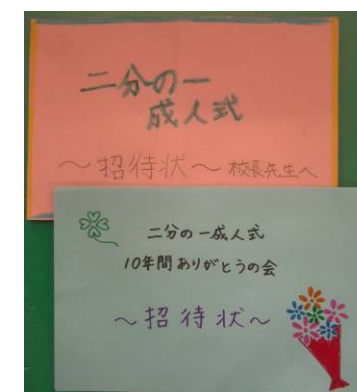 二分の一
成人式
～招待状～校長先生へ
二分の一成人式
10年間ありがとうの会
～招待状～